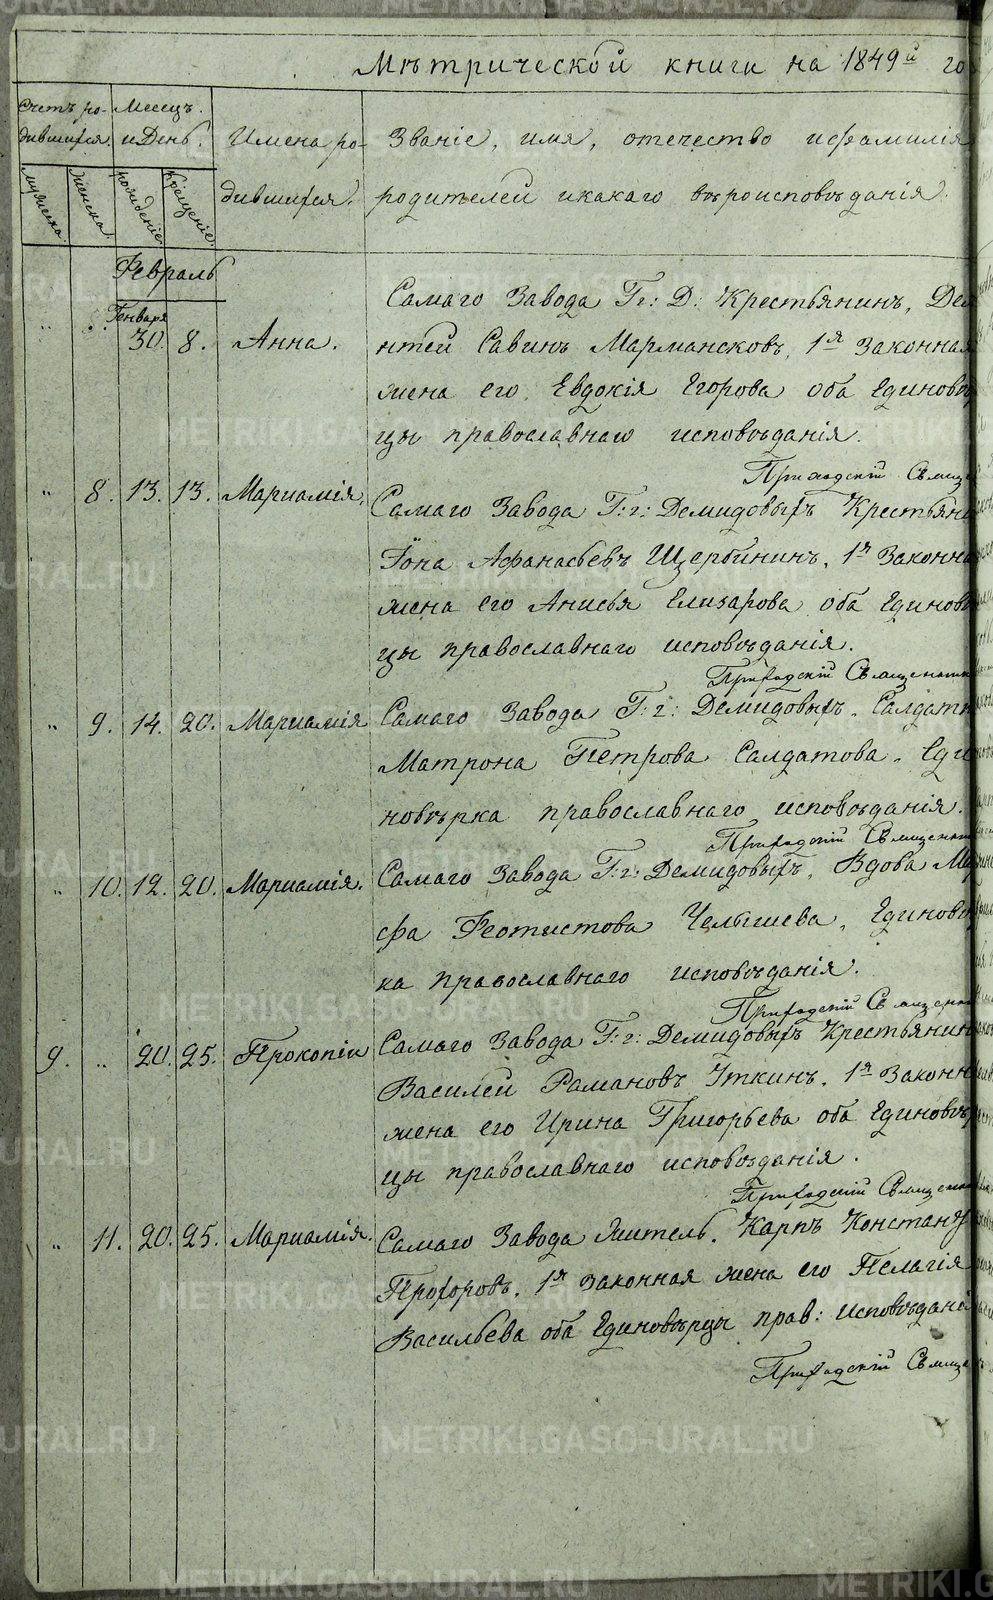 Метрической книги на 1849й го
Счетъ ро- Месецъ.
дившихся. и День. Имена ро- Званіе, имя, отечество и фамилія
дившихся. родителей и какаго вѣроисповѣданія.
мужеска. женска. рожденіе. крещеніе.
Февраль
Генваря
Самаго Завода Гг: Д: Крестьянинъ, Дем
30. 8. Анна. нтей Савинъ Мармансковъ, 1я Законная
жена его Евдокія Егорова оба Единовѣр
цы православнаго исповѣданія.
Приходскій Свяще
" 8. 13. 13. Мариамія. Самаго Завода Г:г: Демидовыхъ Крестьяни
Іона Афанасьевъ Щербининъ, 1я Законна
жена его Анисья Елизарова оба Единовѣ
цы православнаго исповѣданія.
Приходскій Священник
" 9. 14. 20. Мариамія Самаго Завода Г:г: Демидовыхъ, Салдатк
Матрона Петрова Салдатова, Еди
новѣрка православнаго исповѣданія.
Приходскій Священник
" 10. 12. 20. Мариамія. Самаго Завода Г:г: Демидовыхъ, Вдова Ма
сфа Феоктистова Челышева, Единовѣр
ка православнаго исповѣданія.
Приходскій Священ
9. " 20. 25. Прокопіи Самаго Завода Г:г: Демидовыхъ Крестьянин
Василей Рамановъ Уткинъ, 1я Законн
жена его Ирина Григорьева оба Единовѣр
цы православнаго исповѣданія.
Приходскій Священ
" 11. 20. 25. Мариамія. Самаго Завода житель, Карпъ Констант
Прохоровъ, 1я законная жена его Пелагія
Васильева оба Единовѣрцы прав: исповѣдані
Приходскій Свяще
METRIKI.GASO-URAL.RU